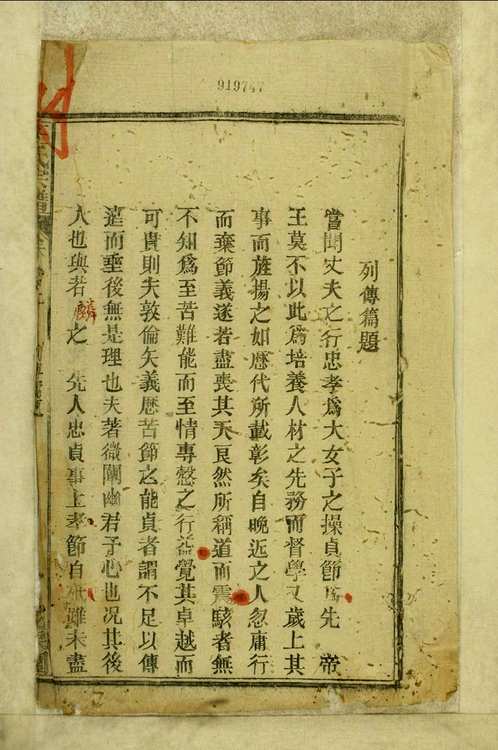 919747
列傳篇題
嘗聞丈夫之行忠孝爲大女子之操貞節爲先 帝
王莫不以此爲培養人材之先務而督學又歲上其
事而旌揚之如歷代所載彰矣自晚近之人忽庸行
而棄節義遂若盡喪其天良然所稱道而震駭者無
不知爲至苦難能而至情專慤之行益覺其卓越而
可貴則夫敦倫矢義歷苦節之能貞者謂不足以傳
遠而垂後無是理也夫著微闡幽君子心也況其後
人也與者麟之 先人忠貞事上孝節自 雖未盡